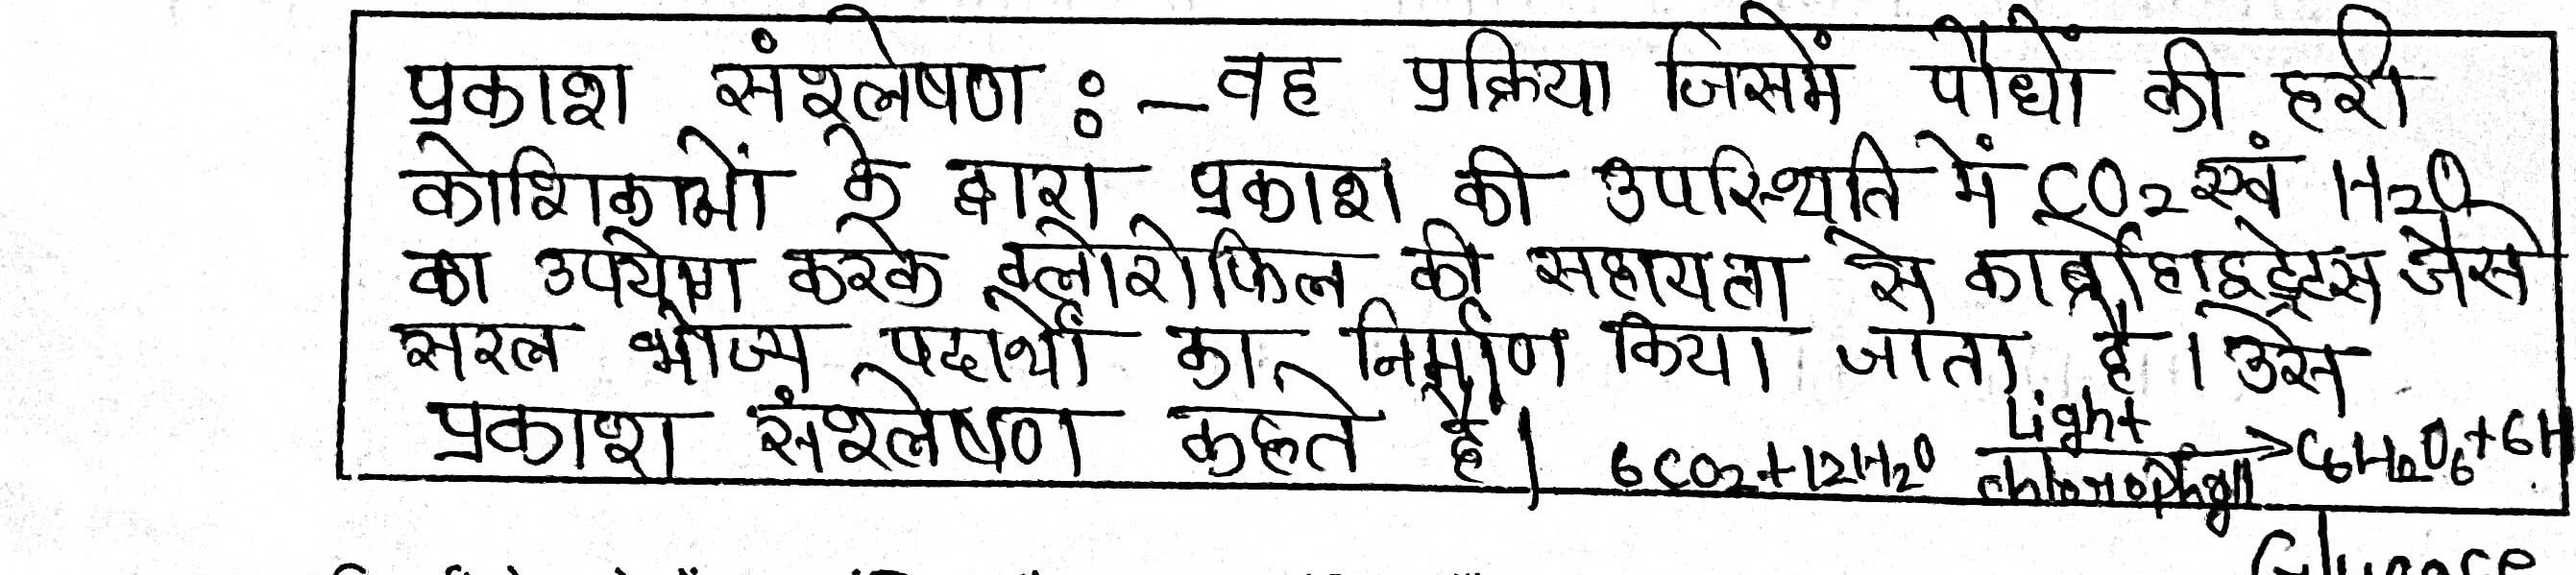 प्रकाश संश्लेषण :- वह प्रक्रिया जिसमें पौधों की हरी
कोशिकाओं के द्वारा प्रकाश की उपस्थिति में CO₂ एवं H₂O
का उपयोग करके क्लोरोफिल की सहायता से कार्बोहाइड्रेट्स जैसे
सरल भोज्य पदार्थों का निर्माण किया जाता है। उसे
प्रकाश संश्लेषण कहते है।
6CO₂+12H₂O Light chlorophyll → C6H12O6+6H
Glucose